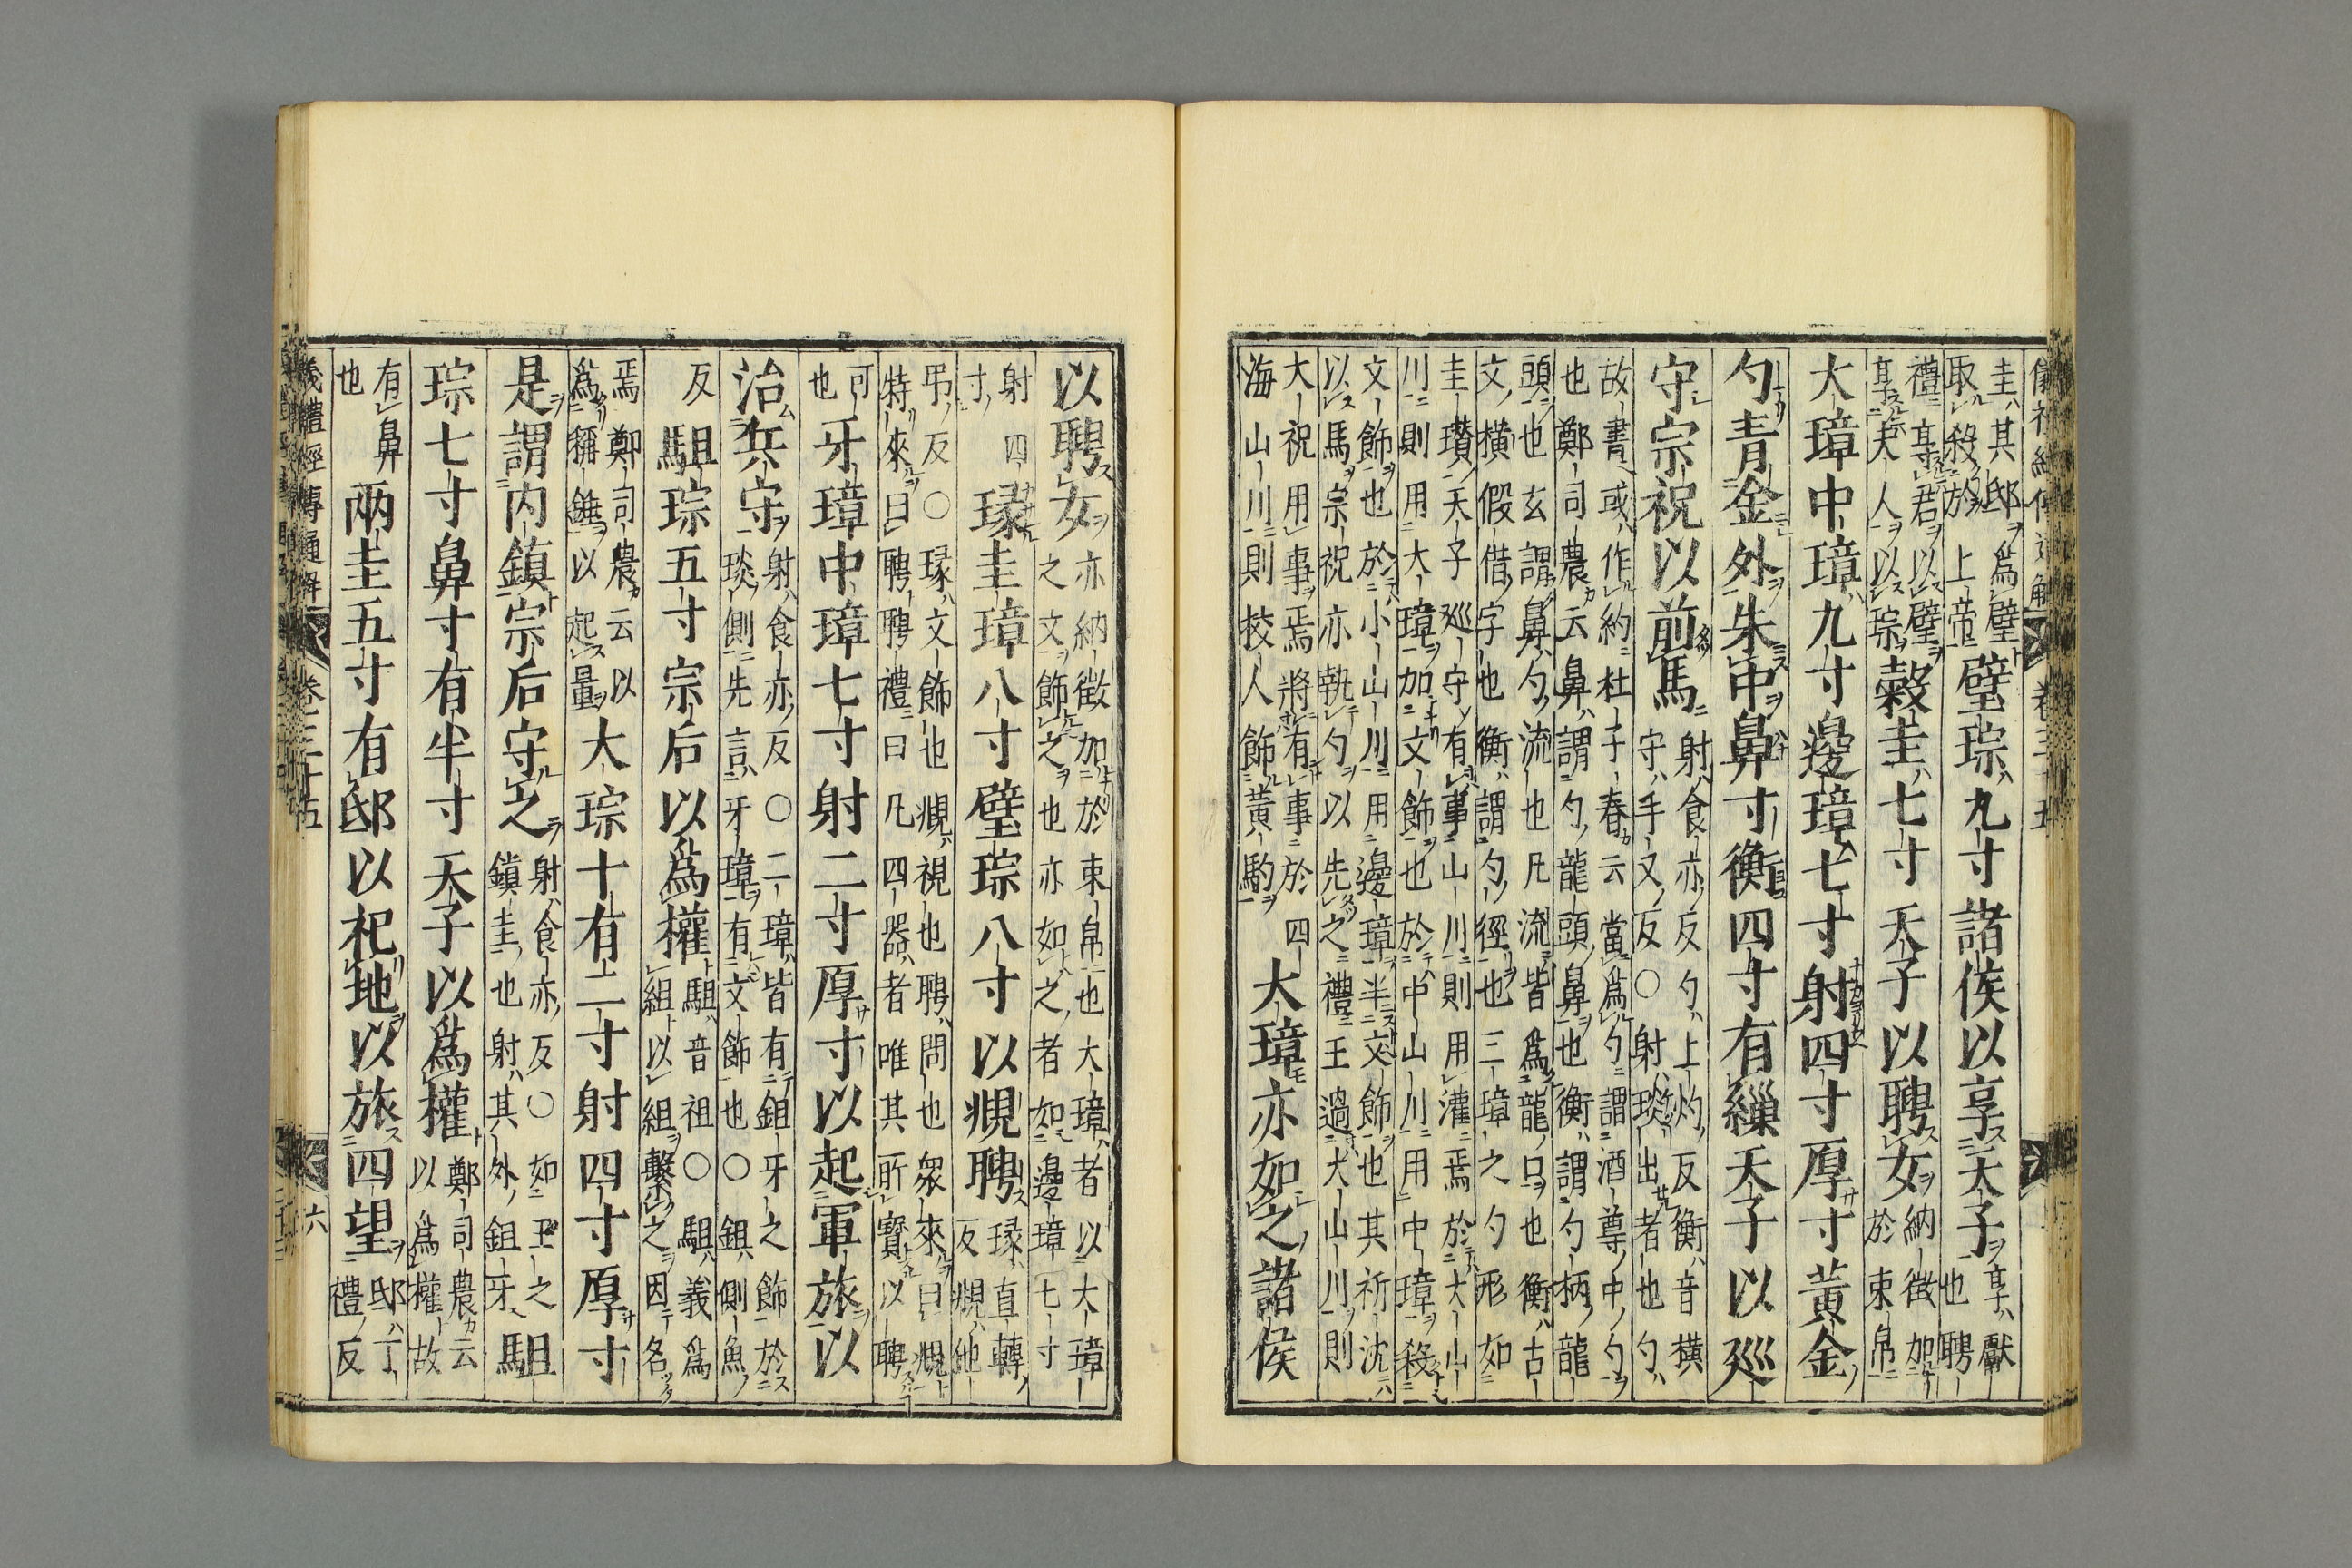 圭其邸爲璧
取殺於上帝
璧琮九寸諸侯以享天子
享獻
也聘
禮享君以璧
享夫人以琮
穀圭七寸天子以聘女
納徵加
於束帛
大璋中璋九寸邊璋七寸射四寸厚寸黃金
勺青金外朱中鼻寸衡四寸有繅天子以巡
守宗祝以前馬
射食亦反勺上灼反衡音橫
守手又反○射琰出者也勺
故書或作約杜子春云當爲勺謂酒尊中勺
也鄭司農云鼻謂勺龍頭鼻也衡謂勺柄龍
頭也玄謂鼻勺流也凡流皆爲龍口也衡古
文橫假借字也衡謂勺徑也三璋之勺形如
圭瓚天子巡守有事山川則用灌焉於大山
川則用大璋加文飾也於中山川用中璋殺
文飾也於小山川用邊璋半文飾也其祈沈
以馬宗祝亦執勺以先之禮王過大山川則
大祝用事焉將有事於四
海山川則校人飾黃駒
大璋亦如之諸侯
以聘女
亦納徵加於束帛也大璋者以大璋
之文飾之也亦如之者如邊璋七寸
射四
寸
瑑圭璋八寸璧琮八寸以覜聘
瑑直轉
反覜他
弔反○瑑文飾也覜視也聘問也眾來曰覜
特來曰聘聘禮曰凡四器者唯其所寶以聘
可
也
牙璋中璋七寸射二寸厚寸以起軍旅以
治兵守
射食亦反○二璋皆有鉏牙之飾於
琰側先言牙璋有文飾也○鉏側魚
反
駔琮五寸宗后以爲權
駔音祖○駔義爲
組以組繫之因名
焉鄭司農云以
爲稱錘以起量
大琮十有二寸射四寸厚寸
是謂內鎮宗后守之
射食亦反○如王之
鎮圭也射其外鉏牙
駔
琮七寸鼻寸有半寸天子以爲權
鄭司農云
以爲權故
有鼻
也
兩圭五寸有邸以祀地以旅四望
邸丁
禮反
儀禮經傳通解 卷三十五 六